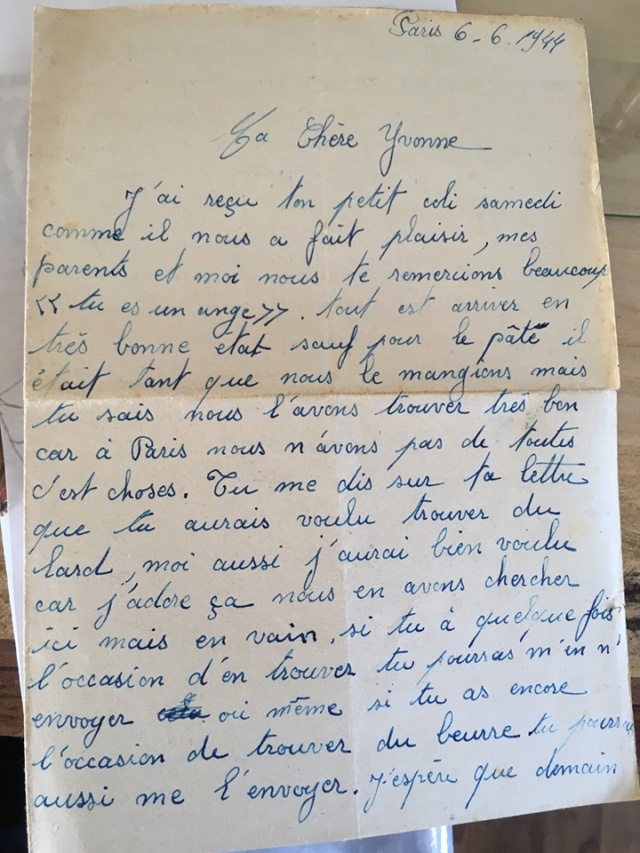 Paris 6-6.1944
Ma Chère Yvonne
J'ai reçu ton petit coli samedi
comme il nous a fait plaisir, mes
parents et moi nous te remercions beaucoup
<< tu es un ange >>. tout est arriver en
très bonne état sauf pour le pâté il
était tant que nous le mangions mais
tu sais nous l'avons trouver très bon
car à Paris nous n'avons pas de toutes
c'est choses. Tu me dis sur ta lettre
que tu aurais voulu trouver du
lard, moi aussi j'aurai bien voulu
car j'adore ça nous en avons chercher
ici mais en vain, si tu à quelque fois
l'occasion d'en trouver tu pourras m'en
envoyer ou même si tu as encore
l'occasion de trouver du beurre tu pourras
aussi me l'envoyer. J'espère que demain